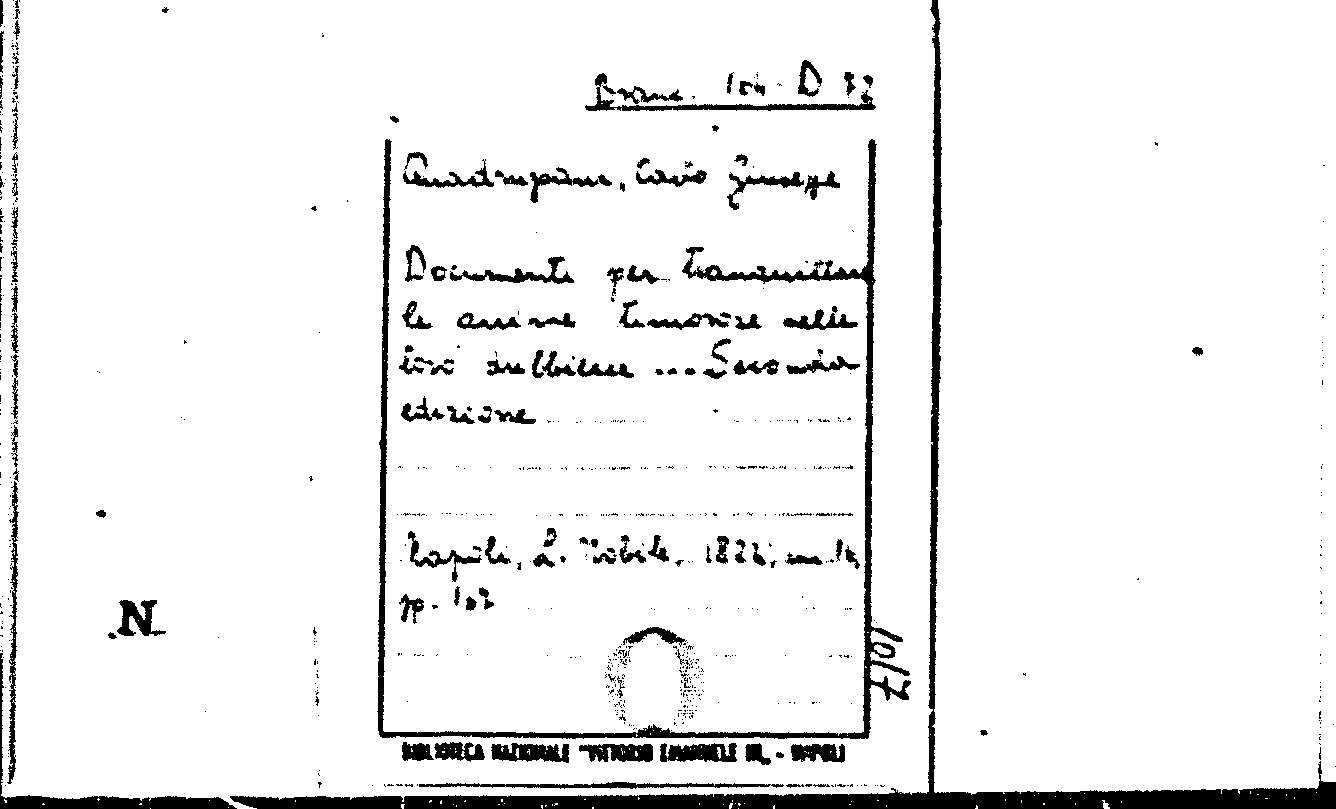 Branc. 104. D 72
Quadrupani, Carlo Giuseppe
Documenti per tranquillare
le anime timorose nelle
loro dubbiezze ... Seconda
edizione
Napoli, L. Nobile, 182
pp. 107
N
BIBLIOTECA NAZIONALE "VITTORIO EMANUELE III„ - NAPOLI